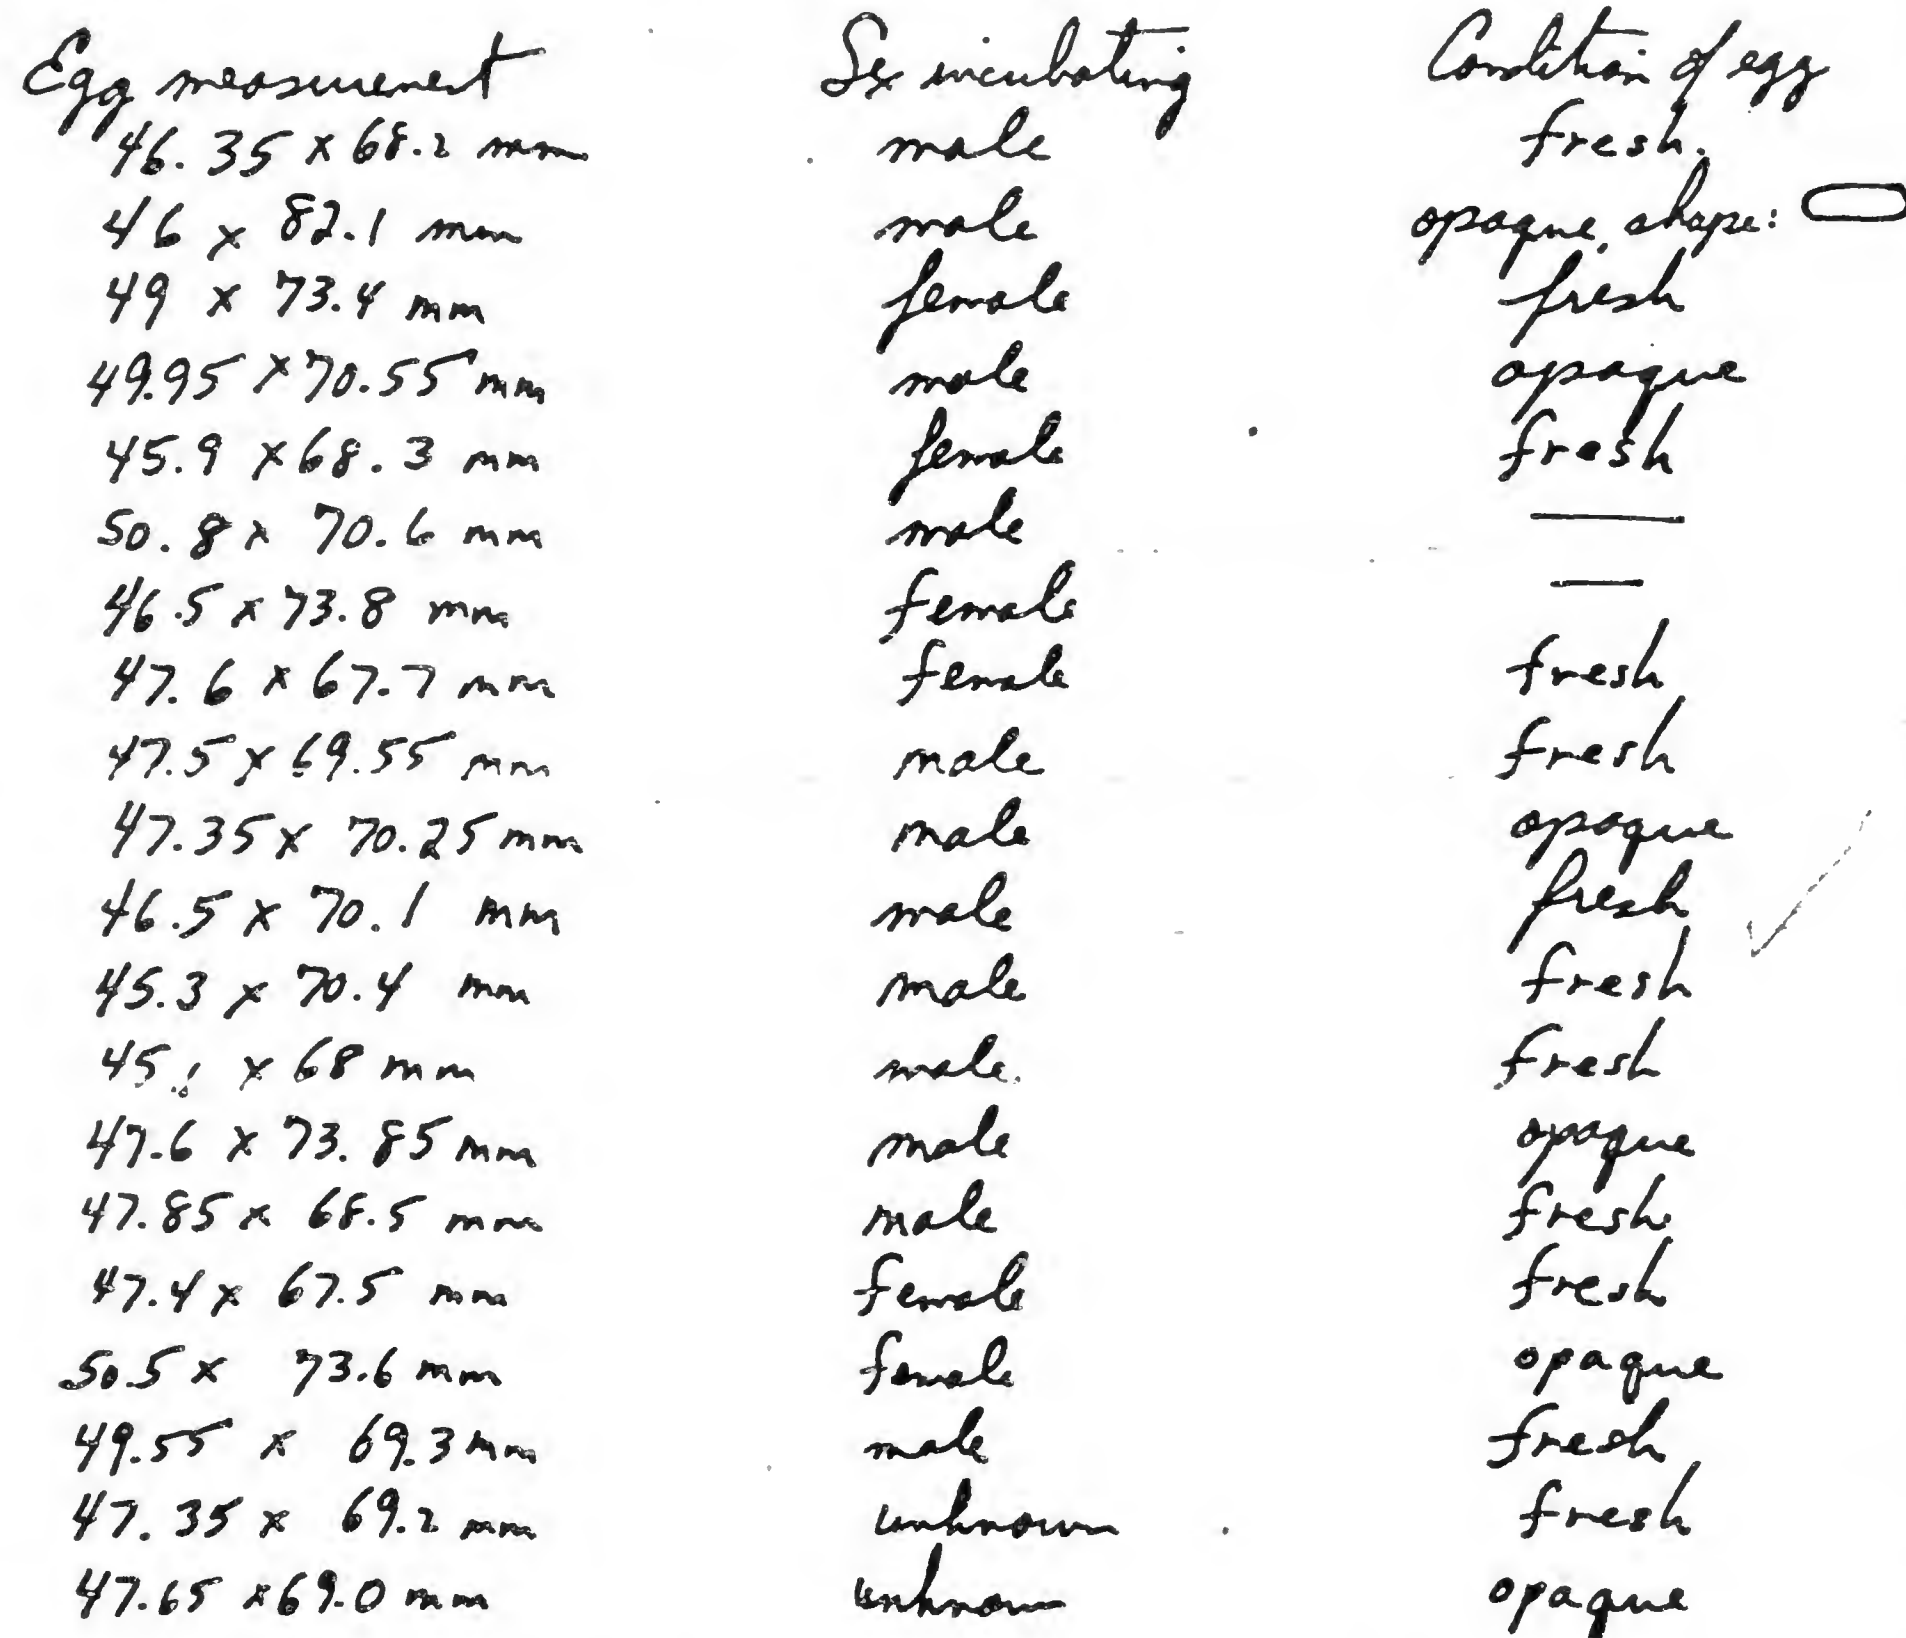 Egg measurement Sex incubating Condition of egg
46.35 x 68.2 mm male fresh.
46 x 82.1 mm male opaque, shape:
49 x 73.4 mm female fresh
49.95 x 70.55 mm male opaque
45.9 x 68.3 mm female fresh
50.8 x 70.6 mm male —
46.5 x 73.8 mm female —
47.6 x 67.7 mm female fresh
47.5 x 69.55 mm male fresh
47.35 x 70.25 mm male opaque
46.5 x 70.1 mm male fresh
45.3 x 70.4 mm male fresh
x 68 mm male. fresh
47.6 x 73.85 mm male opaque
47.85 x 68.5 mm male fresh
47.4 x 67.5 mm female fresh
50.5 x 73.6 mm female opaque
49.55 x 69.3 mm male fresh
47.35 x 69.2 mm unknown fresh
47.65 x 69.0 mm unknown opaque